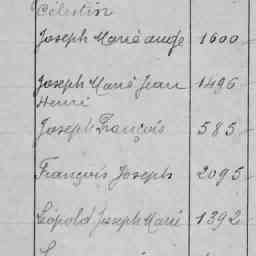 Célestin
Joseph Marie ange 1600
Joseph Marie Jean 1496
Henri
Joseph François 585
François Joseph 2095
Léopold Joseph Marie 1392